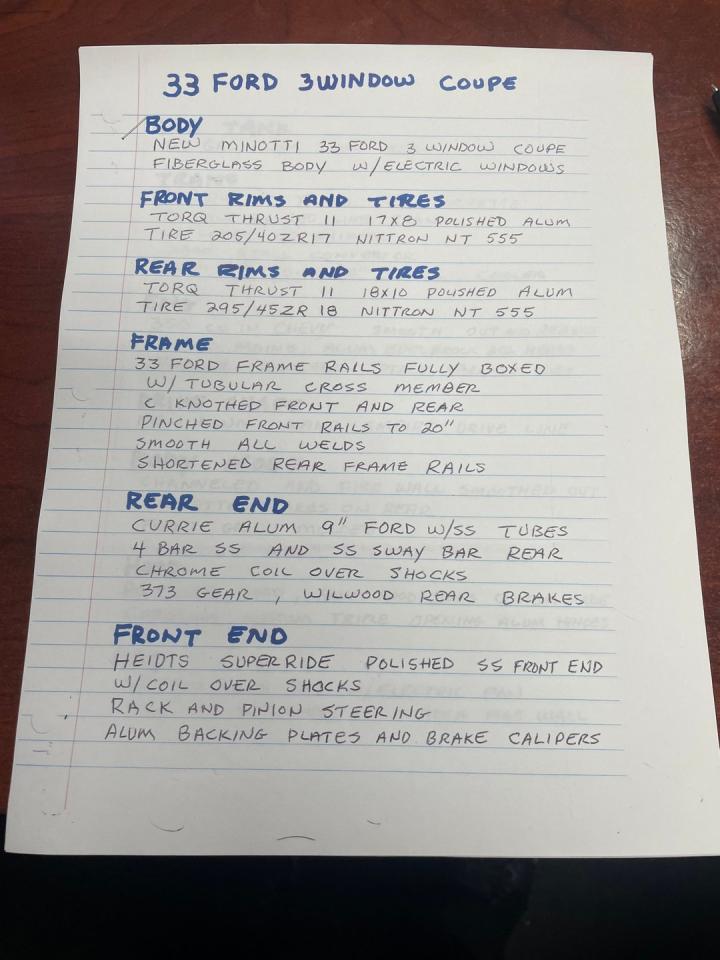 33 FORD 3WINDOW COUPE
BODY
NEW MINOTTI 33 FORD 3 WINDOW COUPE
FIBERGLASS BODY W/ELECTRIC WINDOWS
FRONT RIMS AND TIRES
TORQ THRUST 11 17X8 POLISHED ALUM
TIRE 205/40ZR17 NITTRON NT 555
REAR RIMS AND TIRES
TORQ THRUST 11 18X10 POLISHED ALUM
TIRE 295/45ZR 18 NITTRON NT 555
FRAME
33 FORD FRAME RAILS FULLY BOXED
W/ TUBULAR CROSS MEMBER
C KNOTHED FRONT AND REAR
PINCHED FRONT RAILS TO 20"
SMOOTH ALL WELDS
SHORTENED REAR FRAME RAILS
REAR END
CURRIE ALUM 9" FORD W/SS TUBES
4 BAR SS AND SS SWAY BAR REAR
CHROME COIL OVER SHOCKS
373 GEAR, WILWOOD REAR BRAKES
FRONT END
HEIDTS SUPERRIDE POLISHED SS FRONT END
W/COIL OVER SHOCKS
RACK AND PINION STEERING
ALUM BACKING PLATES AND BRAKE CALIPERS